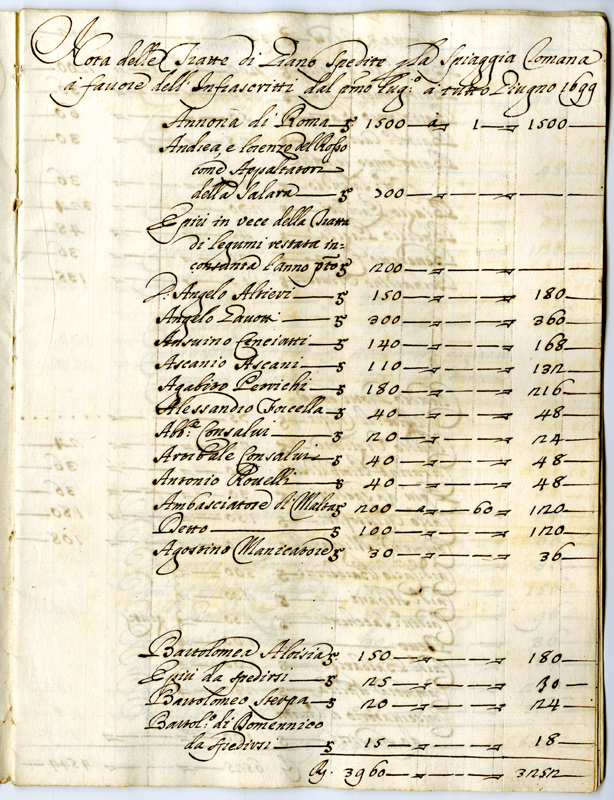 Nota delle Tratte di Grano Spedite p la Spiaggia Romana
a favore dell'Infrascritti dal pmo lug.o a tutto Giugno 1699
Annona di Roma 1500 à 1 1500
Andrea, e lorenzo del Rosso
come Appaltatori
della Salara 300
E più in vece della Tratta
di legumi restata in=
l'anno pto 200
Angelo Altieri 150 180
Angelo 300 360
Ansuino Cenciatti 140 168
Ascanio Ascani 110 132
Agabito Perrichi 180 216
Alessandro Forcella 40 48
Abb.e Consalvi 20 24
Annibale Consalvi 40 48
Antonio Rovelli 40 48
Ambasciatore di Malta 200 à 60 120
Detto 100 120
Agostino Manicatore 30 36
Bartolomea Aloisia 150 180
E più da spedirsi 25 30
Bartolomeo Sterpa 20 24
Bartol.o di Domennico
da spedirsi 15 18
3960 3252